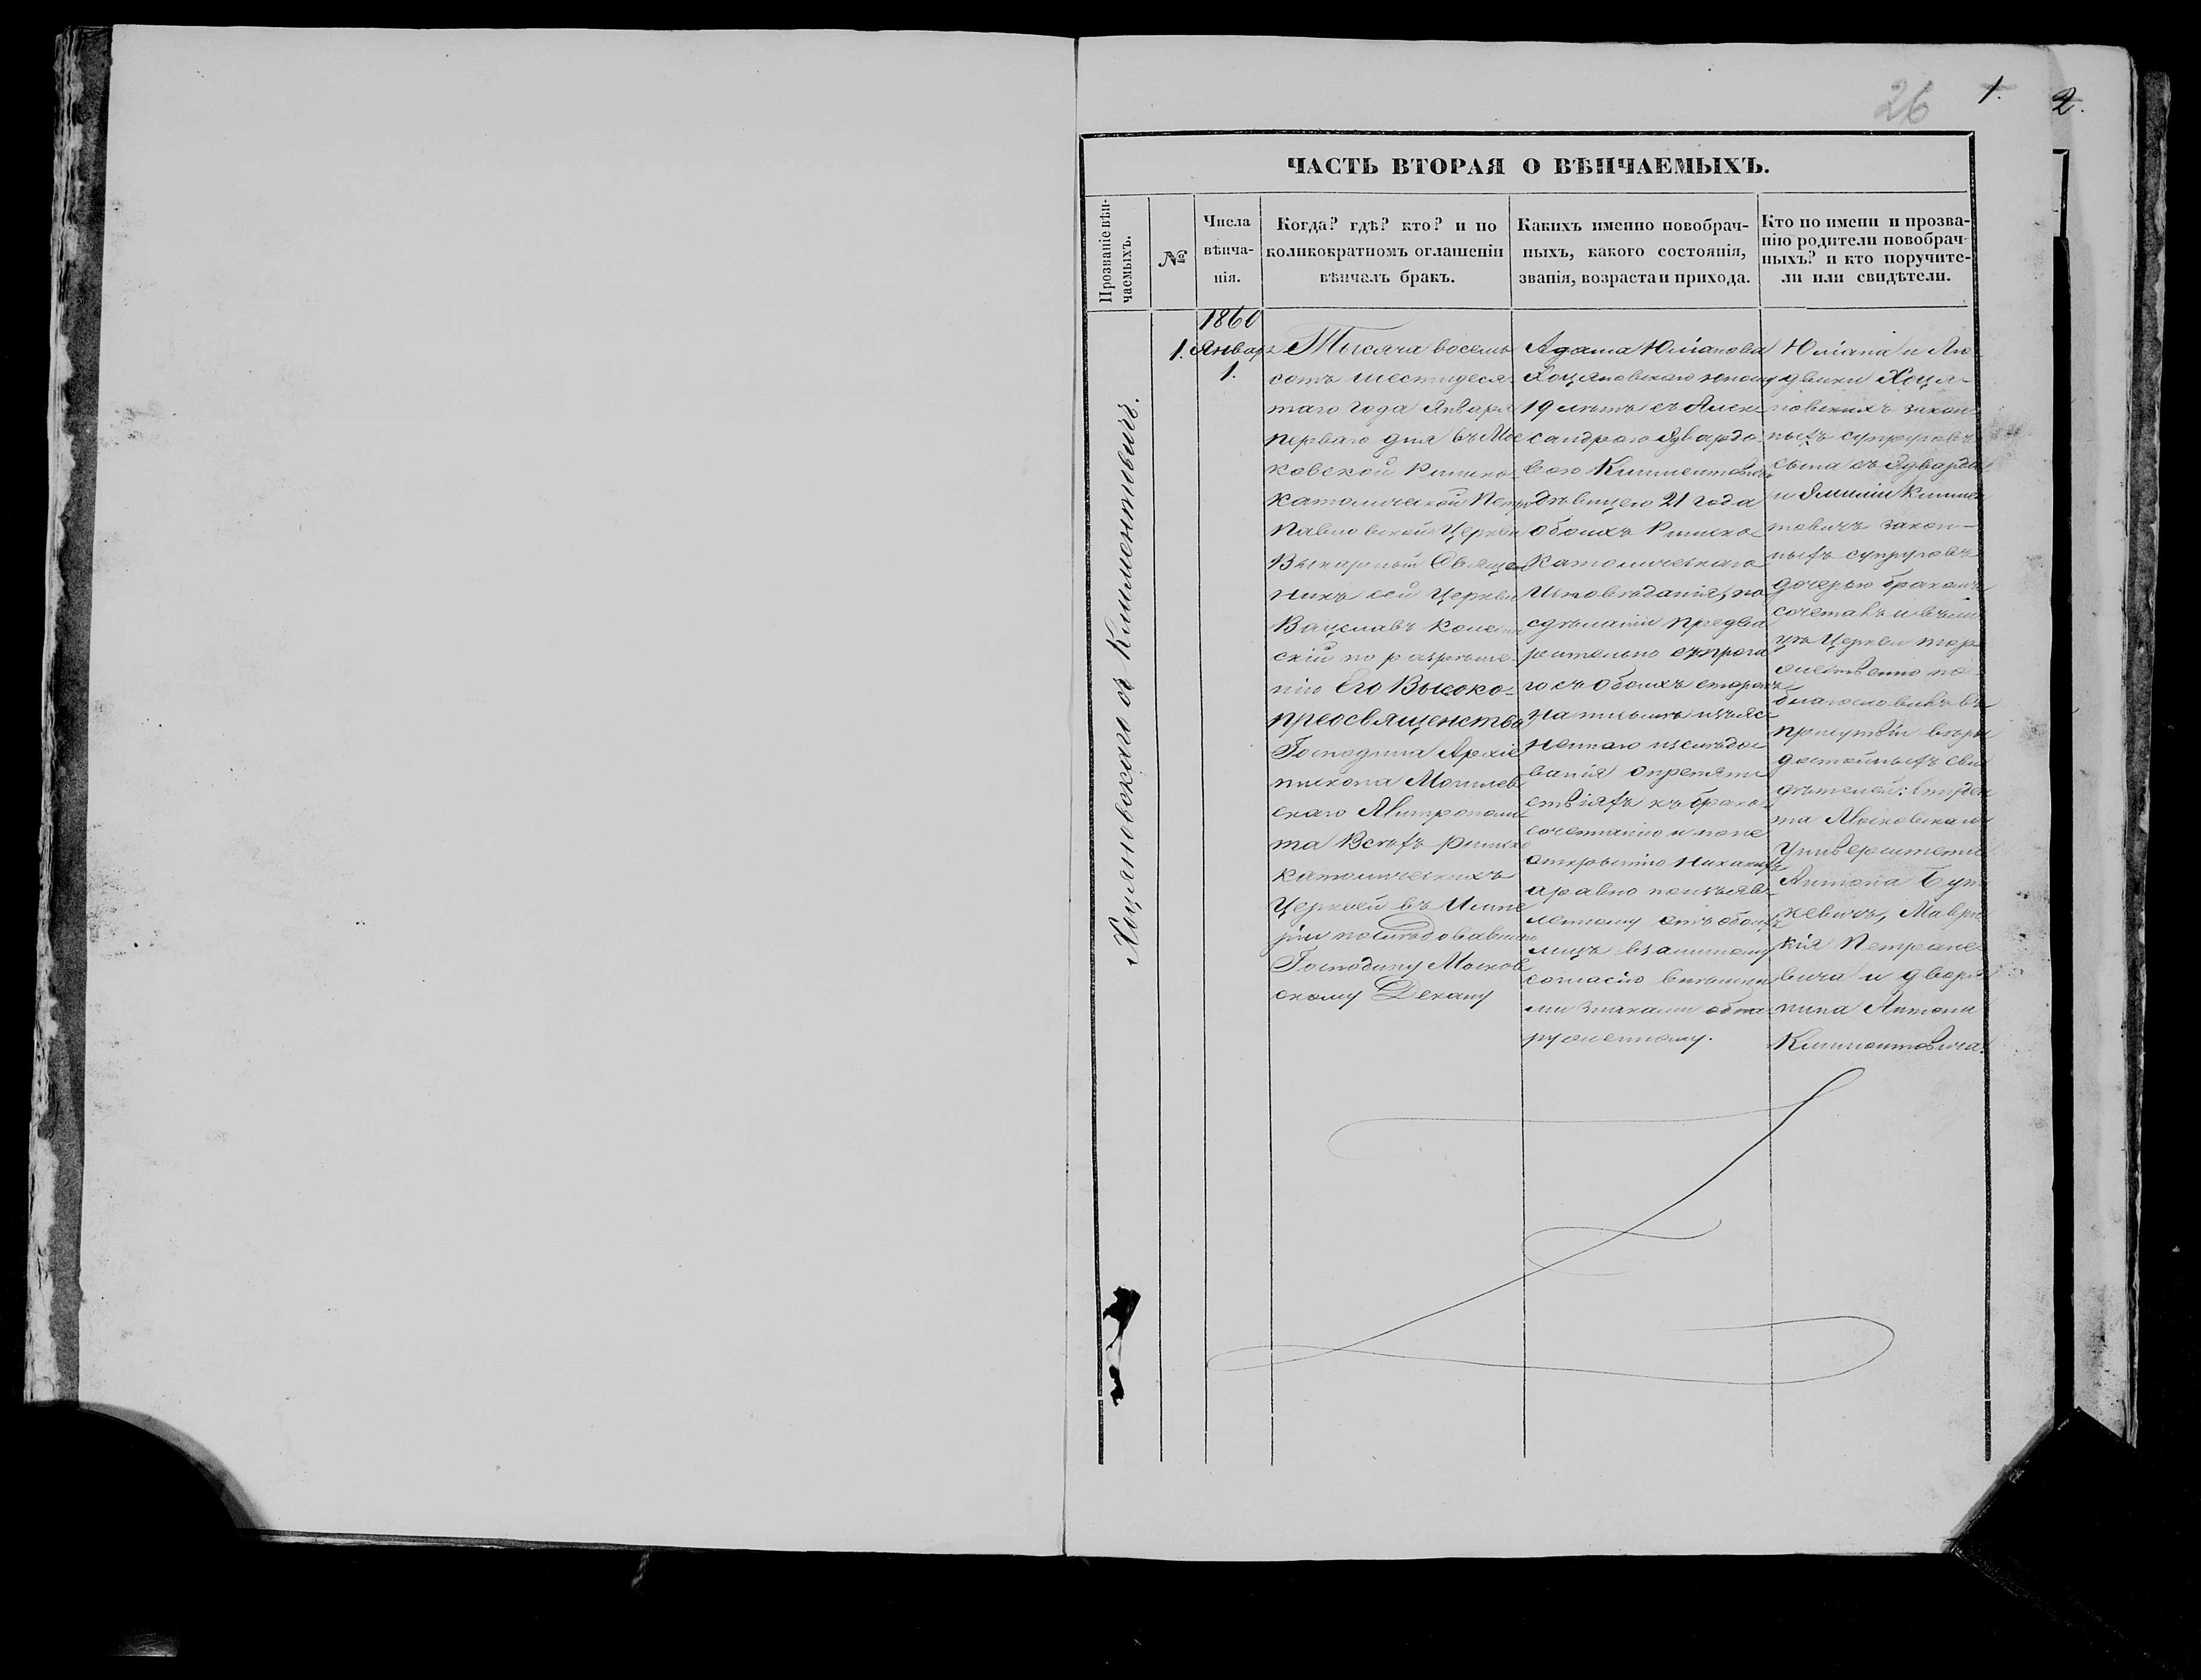 26 1. 2.
ЧАСТЬ ВТОРАЯ О ВѢНЧАЕМЫХЪ.
Прозваніе вѣн-
чаемыхъ.
№
Числа
вѣнча-
нія.
Когда? гдѣ? кто? и по
коликократномъ оглашеніи
вѣнчалъ бракъ.
Какихъ именно новобрач-
ныхъ, какого состоянія,
званія, возраста и прихода.
Кто по имени и прозва-
нію родители новобрач-
ныхъ? и кто поручите-
ли или свидѣтели.
Хоцяновскаго съ Киммонтовичъ.
1.
1860
Январь
1.
Тысяча восемь
сотъ шестидеся-
таго года Января
перваго дня въ Мос
ковской Римско
католической Петро
Павловской Церкви
Викарный Священ
никъ сей Церкви
Вацлавъ
скій по разрѣше-
нію Его Высоко-
преосвященства
Господина Архіе
пископа Могилев
скаго Митрополи
та Всѣхъ Римско
католическихъ
Церквей въ Импе
ріи послѣдовавшему
Господину Москов
скому Декану
Адама Юліанова
Хоцяновскаго юношу
19 лѣтъ съ Алек
сандрою Эдвардо
вою Киммонтовичъ
дѣвицею 21 года
обоихъ Римско
Католическаго
Исповѣданія, по
сдѣланіи предва
рительно строга
го съ обоихъ сторонъ
на письмѣ изъяс
неннаго изслѣдо
ванія о препят
ствіяхъ къ брако
сочетанію и по не
открытію никакихъ
а равно по изъяв
ленному отъ обоихъ
лицъ взаимному
согласію внѣшни
ми знаками обна
руженному.
Юліана и Лю
двики Хоця-
новскихъ закон
ныхъ супруговъ
сына съ Эдварда
и Эмиліи Киммон
товичъ закон-
ныхъ супруговъ
дочерью бракомъ
сочеталъ и въ ли
цѣ Церкви тор
жественно по
благословилъ въ
присутствіи вѣры
достойныхъ сви
дѣтелей: Студен
та Московскаго
Университета
Антона
кевичъ, Маври
кія
вича и дворя
нина Антона
Киммонтовича.